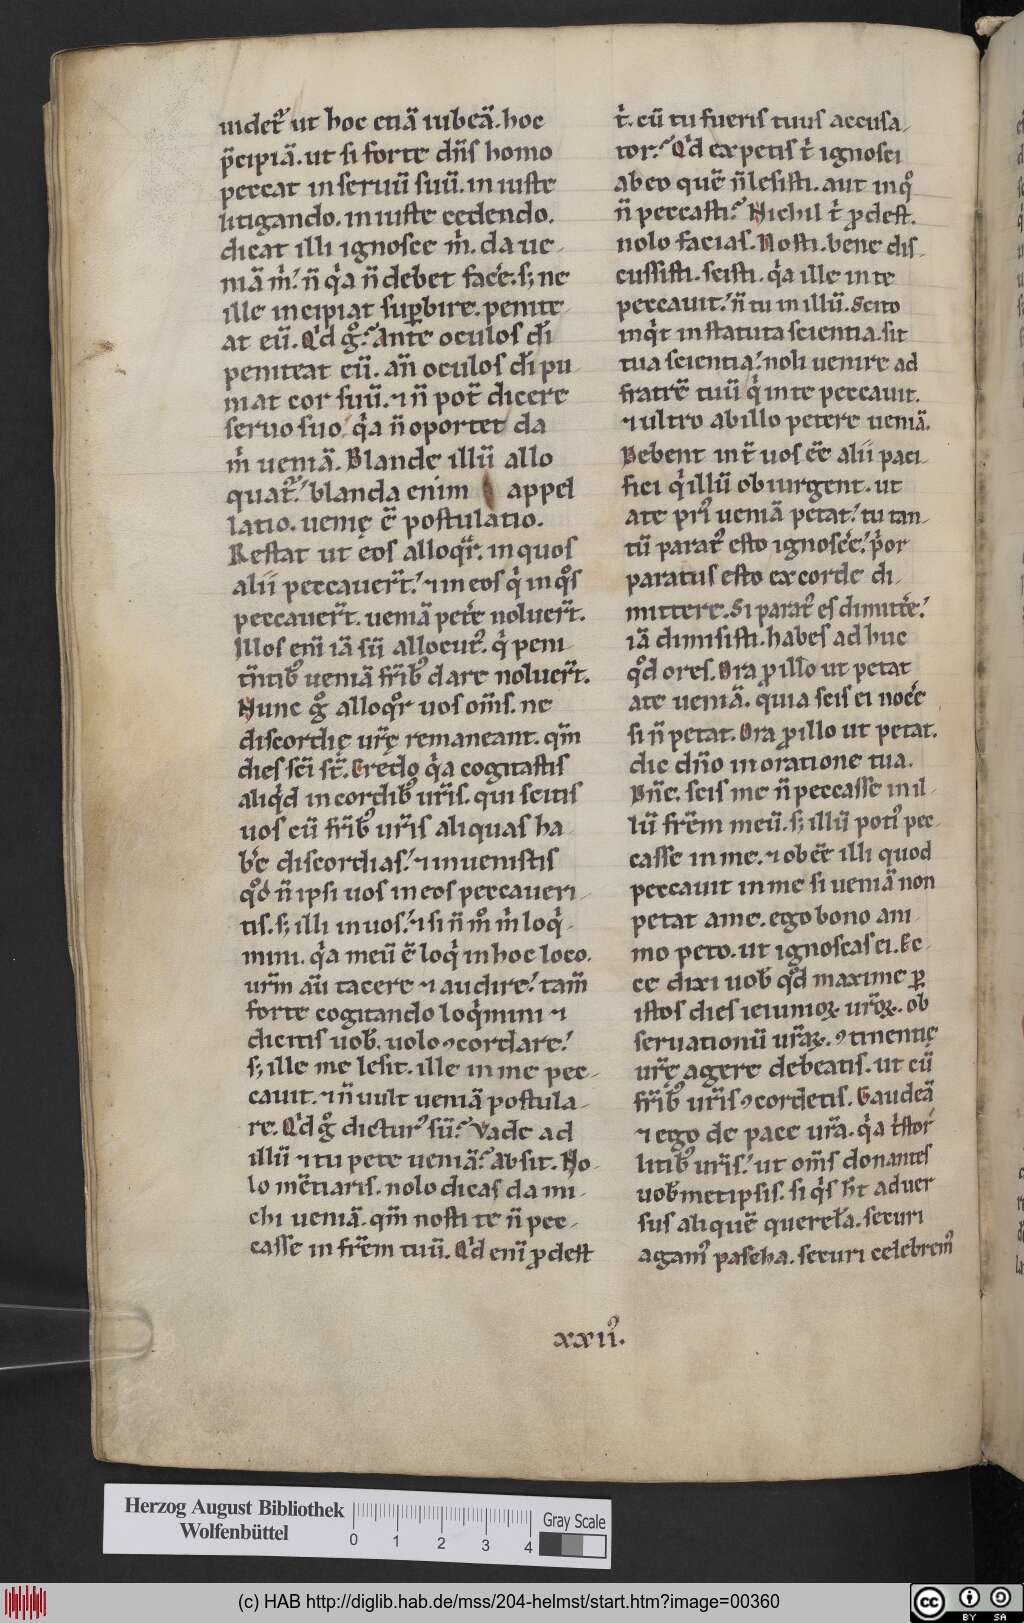 uidet᷑ ut hoc etiā iubeā. hoc
p̄cipiā. ut si forte dn̄s homo
peccat in seruū suū. in iuste
litigando. in iuste cedendo.
dicat illi ignosce m̍. da ue-
niā m̍. n̄ q̍a n̄ debet face͛. s; ne
ille incipiat suꝑbire. penite-
at eū. Q̍d g̊. Ante oculos dī
peniteat eū. an̄ oculos dī pu-
niat cor suū. ⁊ n̄ pot̄ dicere
seruo suo. q̍a n̄ oportet da
m̍ ueniā. Blande illū allo
quat᷑. blanda enim appel
latio. uenię ē postulatio.
Restat ut eos alloq̄r. in quos
alii peccauer̄t. ⁊ in eos q̍ in q̊s
peccauer̄t. ueniā pet͛e noluer̄t.
Illos eni̅ iā sū allocut᷒. q̍ peni-
tn̄tib᷒ ueniā fr̄ib᷒ dare noluer̄t.
Nunc g̊ alloq̊r uos om̄s. ne
discordię ur̄ę remaneant. qm̄
dies sc̄i st̄. Credo q̍a cogitastis
aliq̍d in cordib᷒ ur̄is. qui scitis
uos cū fr̄ib᷒ ur̄is aliquas ha-
b͛e discordias. ⁊ inuenistis
q̊d n̄ ipsi uos in eos peccaueri-
tis. s; illi in uos. ⁊ si n̄ m̊ m̍ loq̍-
mini. q̍a meū ē loq̍ in hoc loco.
ur̄m au̅ tacere ⁊ audire. tam̄
forte cogitando loq̍mini ⁊
dicitis uob̄. uolo ꝯcordare.
s; ille me lesit. ille in me pec-
cauit. ⁊ n̄ uult ueniā postula-
re. Q̍d g̊ dictur᷒ sū. Vade ad
illū ⁊ tu pete ueniā. Absit. No-
lo mētiaris. nolo dicas da mi-
chi ueniā. qm̄ nosti te n̄ pec-
casse in fr̄em tuū. Q̍d eni̅ ꝓdest
t̍. cū tu fueris tuus accusa-
tor. Q̍d expetis t̍ ignosci
ab eo quē n̄ lesisti. aut in q̊
n̄ peccasti. Nichil t̍ ꝓdest.
nolo facias. Nosti. bene dis-
cussisti. scisti. q̍a ille in te
peccauit. n̄ tu in illū. Scito
inq̍t in statuta scientia. sit
tua scientia. noli uenire ad
fratrē tuū q̍ in te peccauit.
⁊ ultro ab illo petere ueniā.
Debent int̄ uos ee̅ alii paci-
fici q̍ illū obiurgent. ut
a te pri᷒ ueniā petat. tu tan-
tū parat᷒ esto ignosc͛e. p̍or
paratus esto ex corde di-
mittere. Si parat᷒ es dimitt͛e.
iā dimisisti. habes adhuc
q̊d ores. Ora ꝓ illo ut petat
a te ueniā. quia scis ei noc͛e
si n̄ petat. Ora ꝓ illo ut petat.
dic dn̄o in oratione tua.
Dn̄e. scis me n̄ peccasse in il-
lū fr̄em meū. s; illū poti᷒ pec-
casse in me. ⁊ obee̅ illi quod
peccauit in me si ueniā non
petat a me. ego bono ani-
mo peto. ut ignoscas ei. Ec-
ce dixi uob̄ q̊d maxime ꝑ
istos dies ieiunioꝝ ur̄oꝝ. ob
seruationū ur̄aꝝ. ꝯtinentię
ur̄ę agere debeatis. ut cū
fr̄ib᷒ ur̄is ꝯcordetis. Gaudeā
⁊ ego de pace ur̄a. q̍a t̍stor͛
litib᷒ ur̄is. ut om̄s donantes
uob̄metipsis. si q̍s h̄t aduer
sus aliquē querełā. securi
agam᷒ pascha. securi celebrem᷒
xxii᷒.
Herzog August Bibliothek
Wolfenbüttel
0 1 2 3 4
Gray Scale
(c) HAB http://diglib.hab.de/mss/204-helmst/start.htm?image=00360
cc BY SA